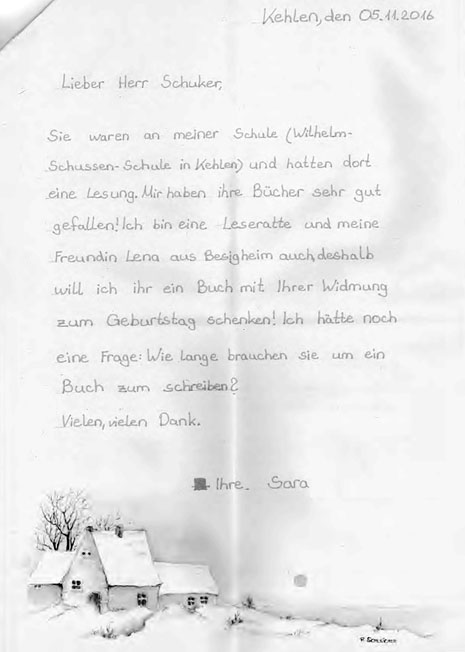 Kehlen, den 05.11.2016
Lieber Herr Schuker,
Sie waren an meiner Schule (Wilhelm-
Schussen-Schule in Kehlen) und hatten dort
eine Lesung. Mir haben ihre Bücher sehr gut
gefallen! Ich bin eine Leseratte und meine
Freundin Lena aus Besigheim auch, deshalb
will ich ihr ein Buch mit Ihrer Widmung
zum Geburtstag schenken! Ich hätte noch
eine Frage: Wie lange brauchen sie um ein
Buch zum schreiben?
Vielen, vielen Dank.
Ihre Sara